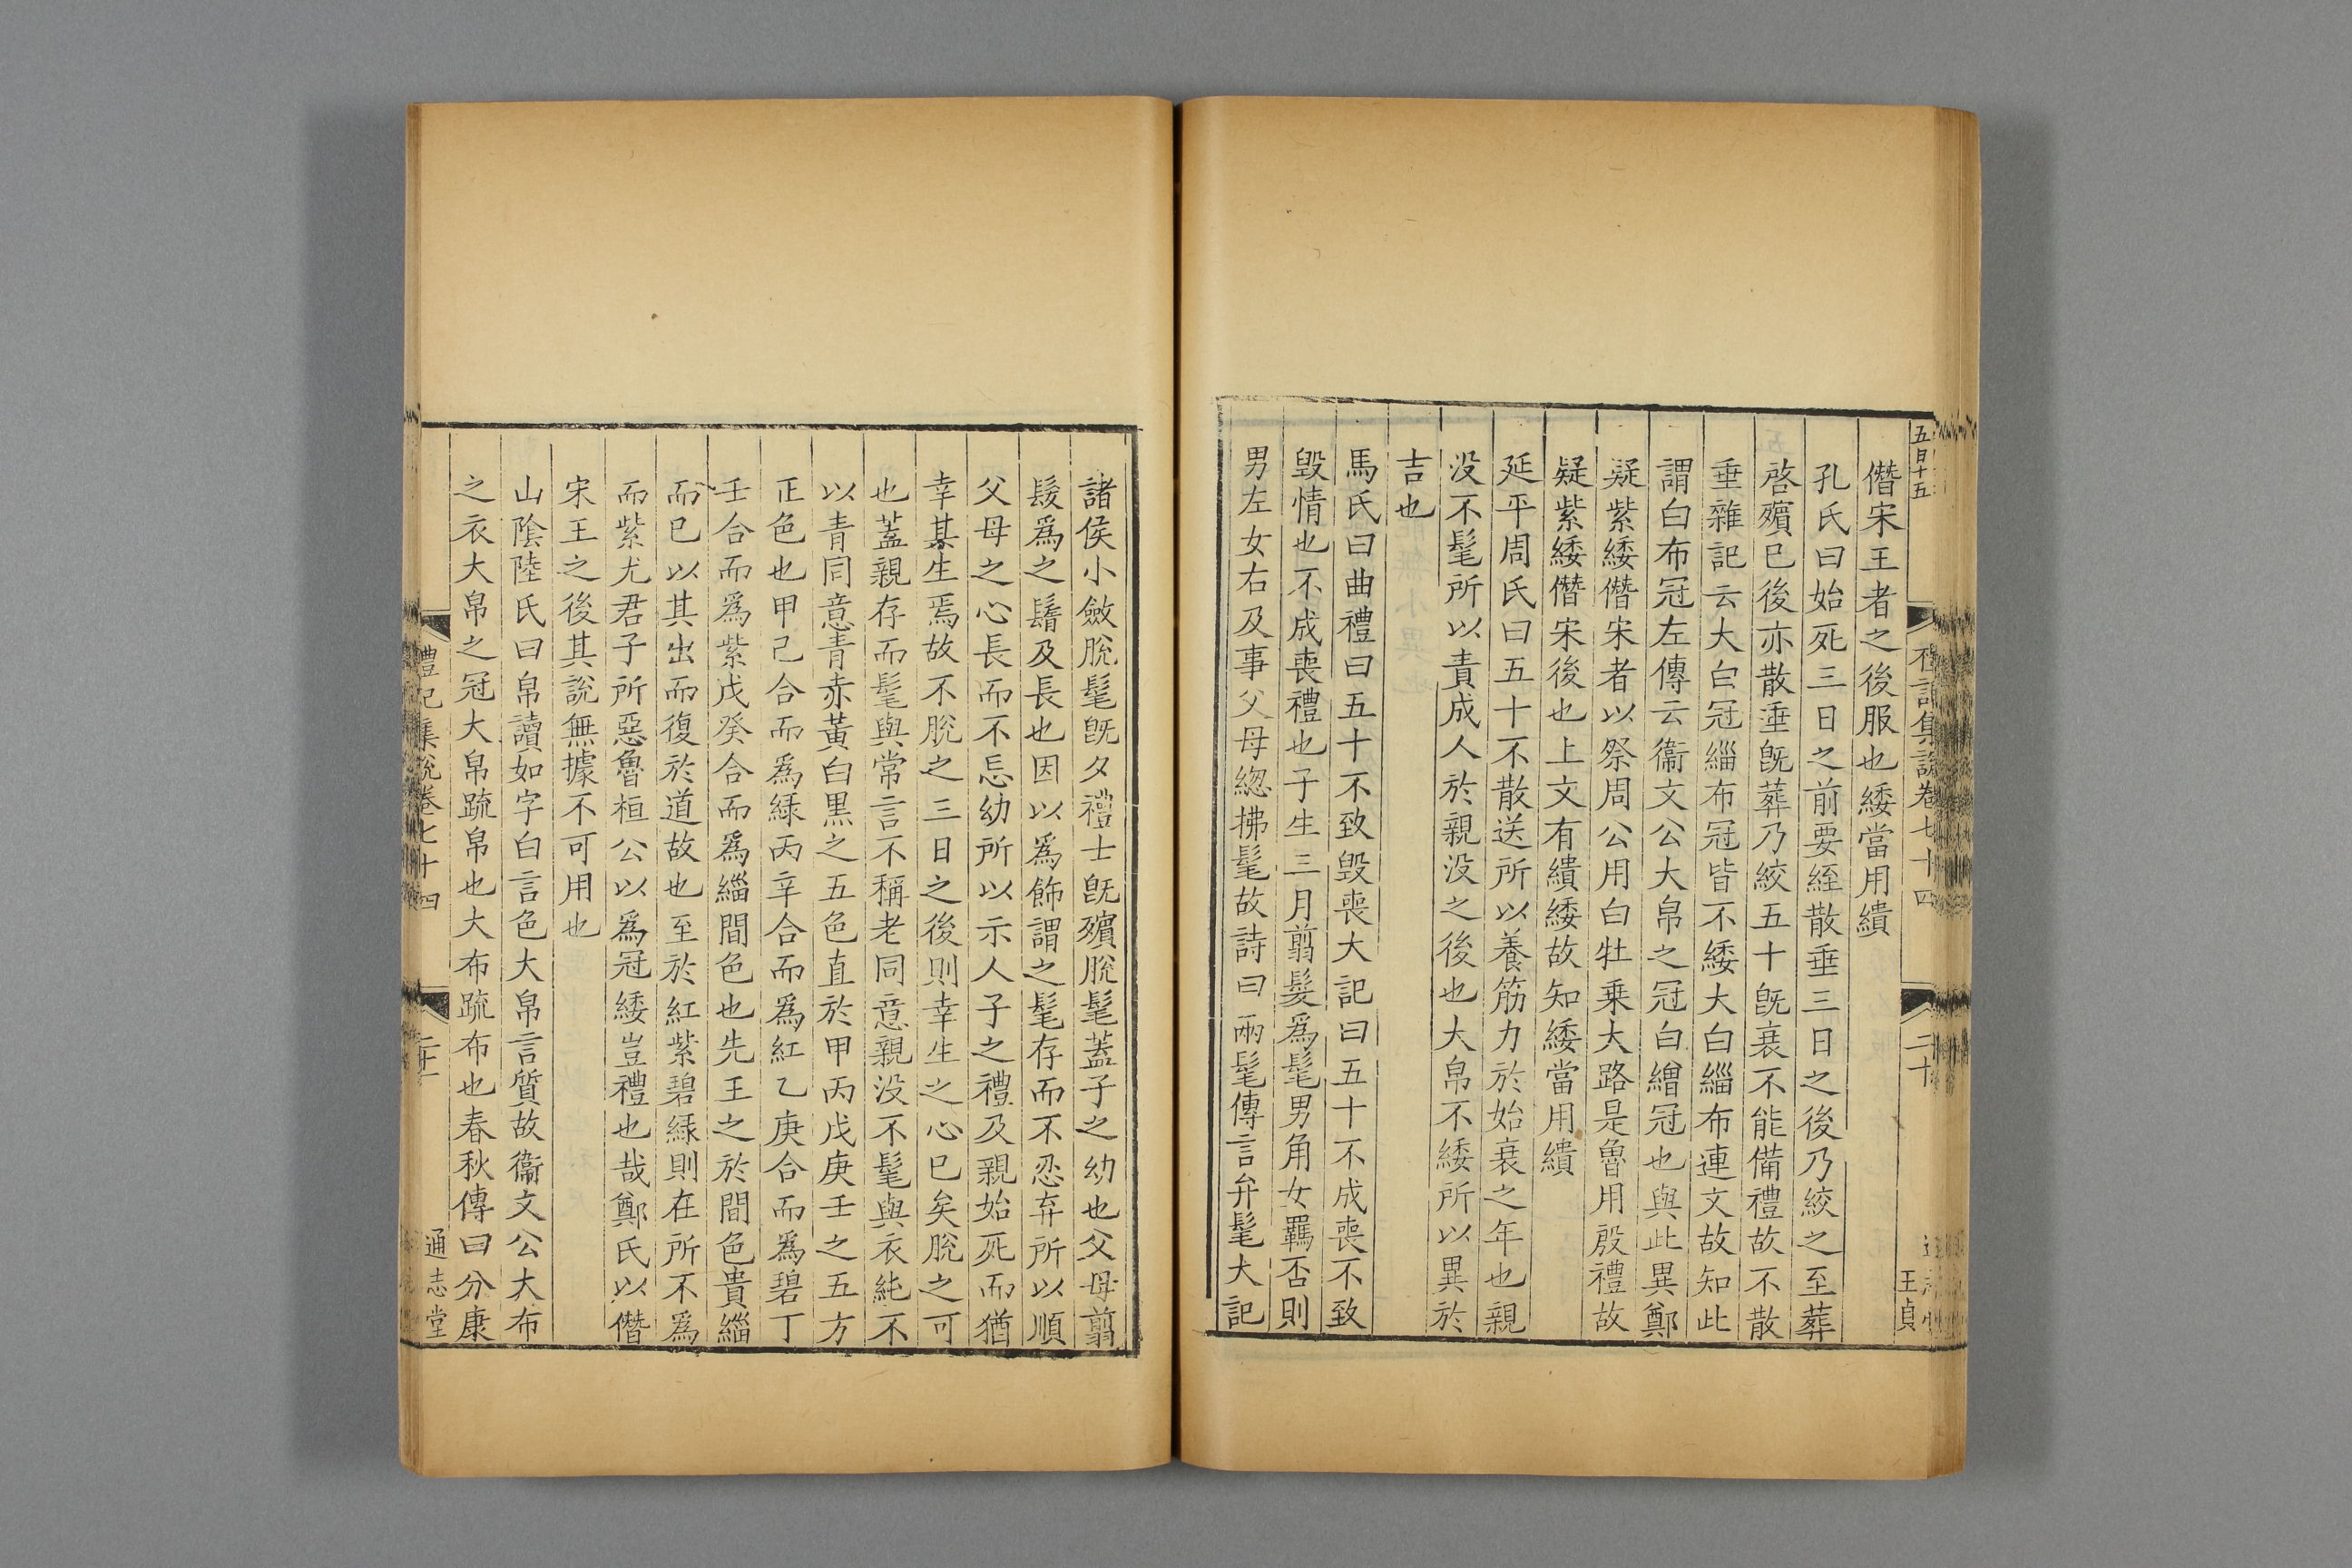 五百十五
禮記集說卷七十四
二十
王貞
僭宋王者之後服也緌當用繢
孔氏曰始死三日之前要絰散垂三日之後乃絞之至葬
啓殯已後亦散垂旣葬乃絞五十旣衰不能備禮故不散
垂雜記云大白冠緇布冠皆不緌大白緇布連文故知此
謂白布冠左傳云衞文公大帛之冠白繒冠也與此異鄭
疑紫緌僭宋者以祭周公用白牡乗大路是魯用殷禮故
疑紫緌僭宋後也上文有繢緌故知緌當用繢
延平周氏曰五十不散送所以養筋力於始衰之年也親
没不髦所以責成人於親没之後也大帛不緌所以異於
吉也
馬氏曰曲禮曰五十不致毀喪大記曰五十不成喪不致
毀情也不成喪禮也子生三月翦髮爲髦男角女羈否則
男左女右及事父母緫拂髦故詩曰兩髦傳言弁髦大記
諸侯小斂脫髦旣夕禮士旣殯脫髦蓋子之幼也父母翦
髮爲之鬌及長也因以爲飾謂之髦存而不忍弃所以順
父母之心長而不忘幼所以示人子之禮及親始死而猶
幸其生焉故不脫之三日之後則幸生之心已矣脫之可
也蓋親存而髦與常言不稱老同意親没不髦與衣純不
以青同意青赤黃白黑之五色直於甲丙戊庚壬之五方
正色也甲己合而爲緑丙辛合而爲紅乙庚合而爲碧丁
壬合而爲紫戊癸合而爲緇間色也先王之於間色貴緇
而已以其出而復於道故也至於紅紫碧緑則在所不爲
而紫尤君子所惡魯桓公以爲冠緌豈禮也哉鄭氏以僭
宋王之後其說無據不可用也
山陰陸氏曰帛讀如字白言色大帛言質故衞文公大布
之衣大帛之冠大帛疏帛也大布疏布也春秋傳曰分康
禮記集說卷七十四
二十一
通志堂